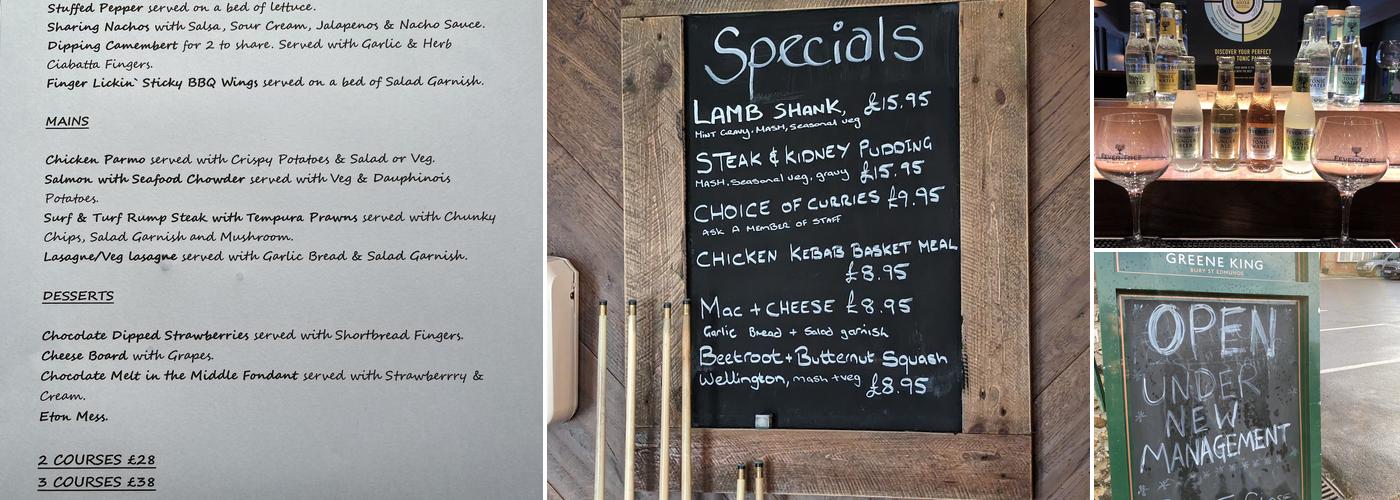 Stuffed Pepper served on a bed of lettuce.
Sharing Nachos with Salsa, Sour Cream, Jalapenos & Nacho Sauce.
Dipping Camembert for 2 to share. Served with Garlic & Herb
Ciabatta Fingers.
Finger Lickin` Sticky BBQ Wings served on a bed of Salad Garnish.
MAINS
Chicken Parmo served with Crispy Potatoes & Salad or Veg.
Salmon with Seafood Chowder served with Veg & Dauphinois
Potatoes.
Surf & Turf Rump Steak with Tempura Prawns served with Chunky
Chips, Salad Garnish and Mushroom.
Lasagne/Veg lasagne served with Garlic Bread & Salad Garnish.
DESSERTS
Chocolate Dipped Strawberries served with Shortbread Fingers.
Cheese Board with Grapes.
Chocolate Melt in the Middle Fondant served with Strawberrry &
Cream.
Eton Mess.
2 COURSES £28
3 COURSES £38
Specials
LAMB SHANK, £15.95
MINT GRAVY, MASH, Seasonal veg
STEAK & KIDNEY PUDDING
MASH, Seasonal veg, gravy £15.95
CHOICE OF CURRIES £9.95
ASK A MEMBER OF STAFF
CHICKEN KEBAB BASKET MEAL
£8.95
Mac + CHEESE £8.95
Garlic Bread + Salad garnish
Beetroot + Butternut Squash
Wellington, mash + veg £8.95
DISCOVER YOUR PERFECT
TONIC
TONIC WATER
FEVER-TREE
FEVER-TREE
GREENE KING
BURY ST EDMUNDS
OPEN
UNDER
NEW
MANAGEMENT